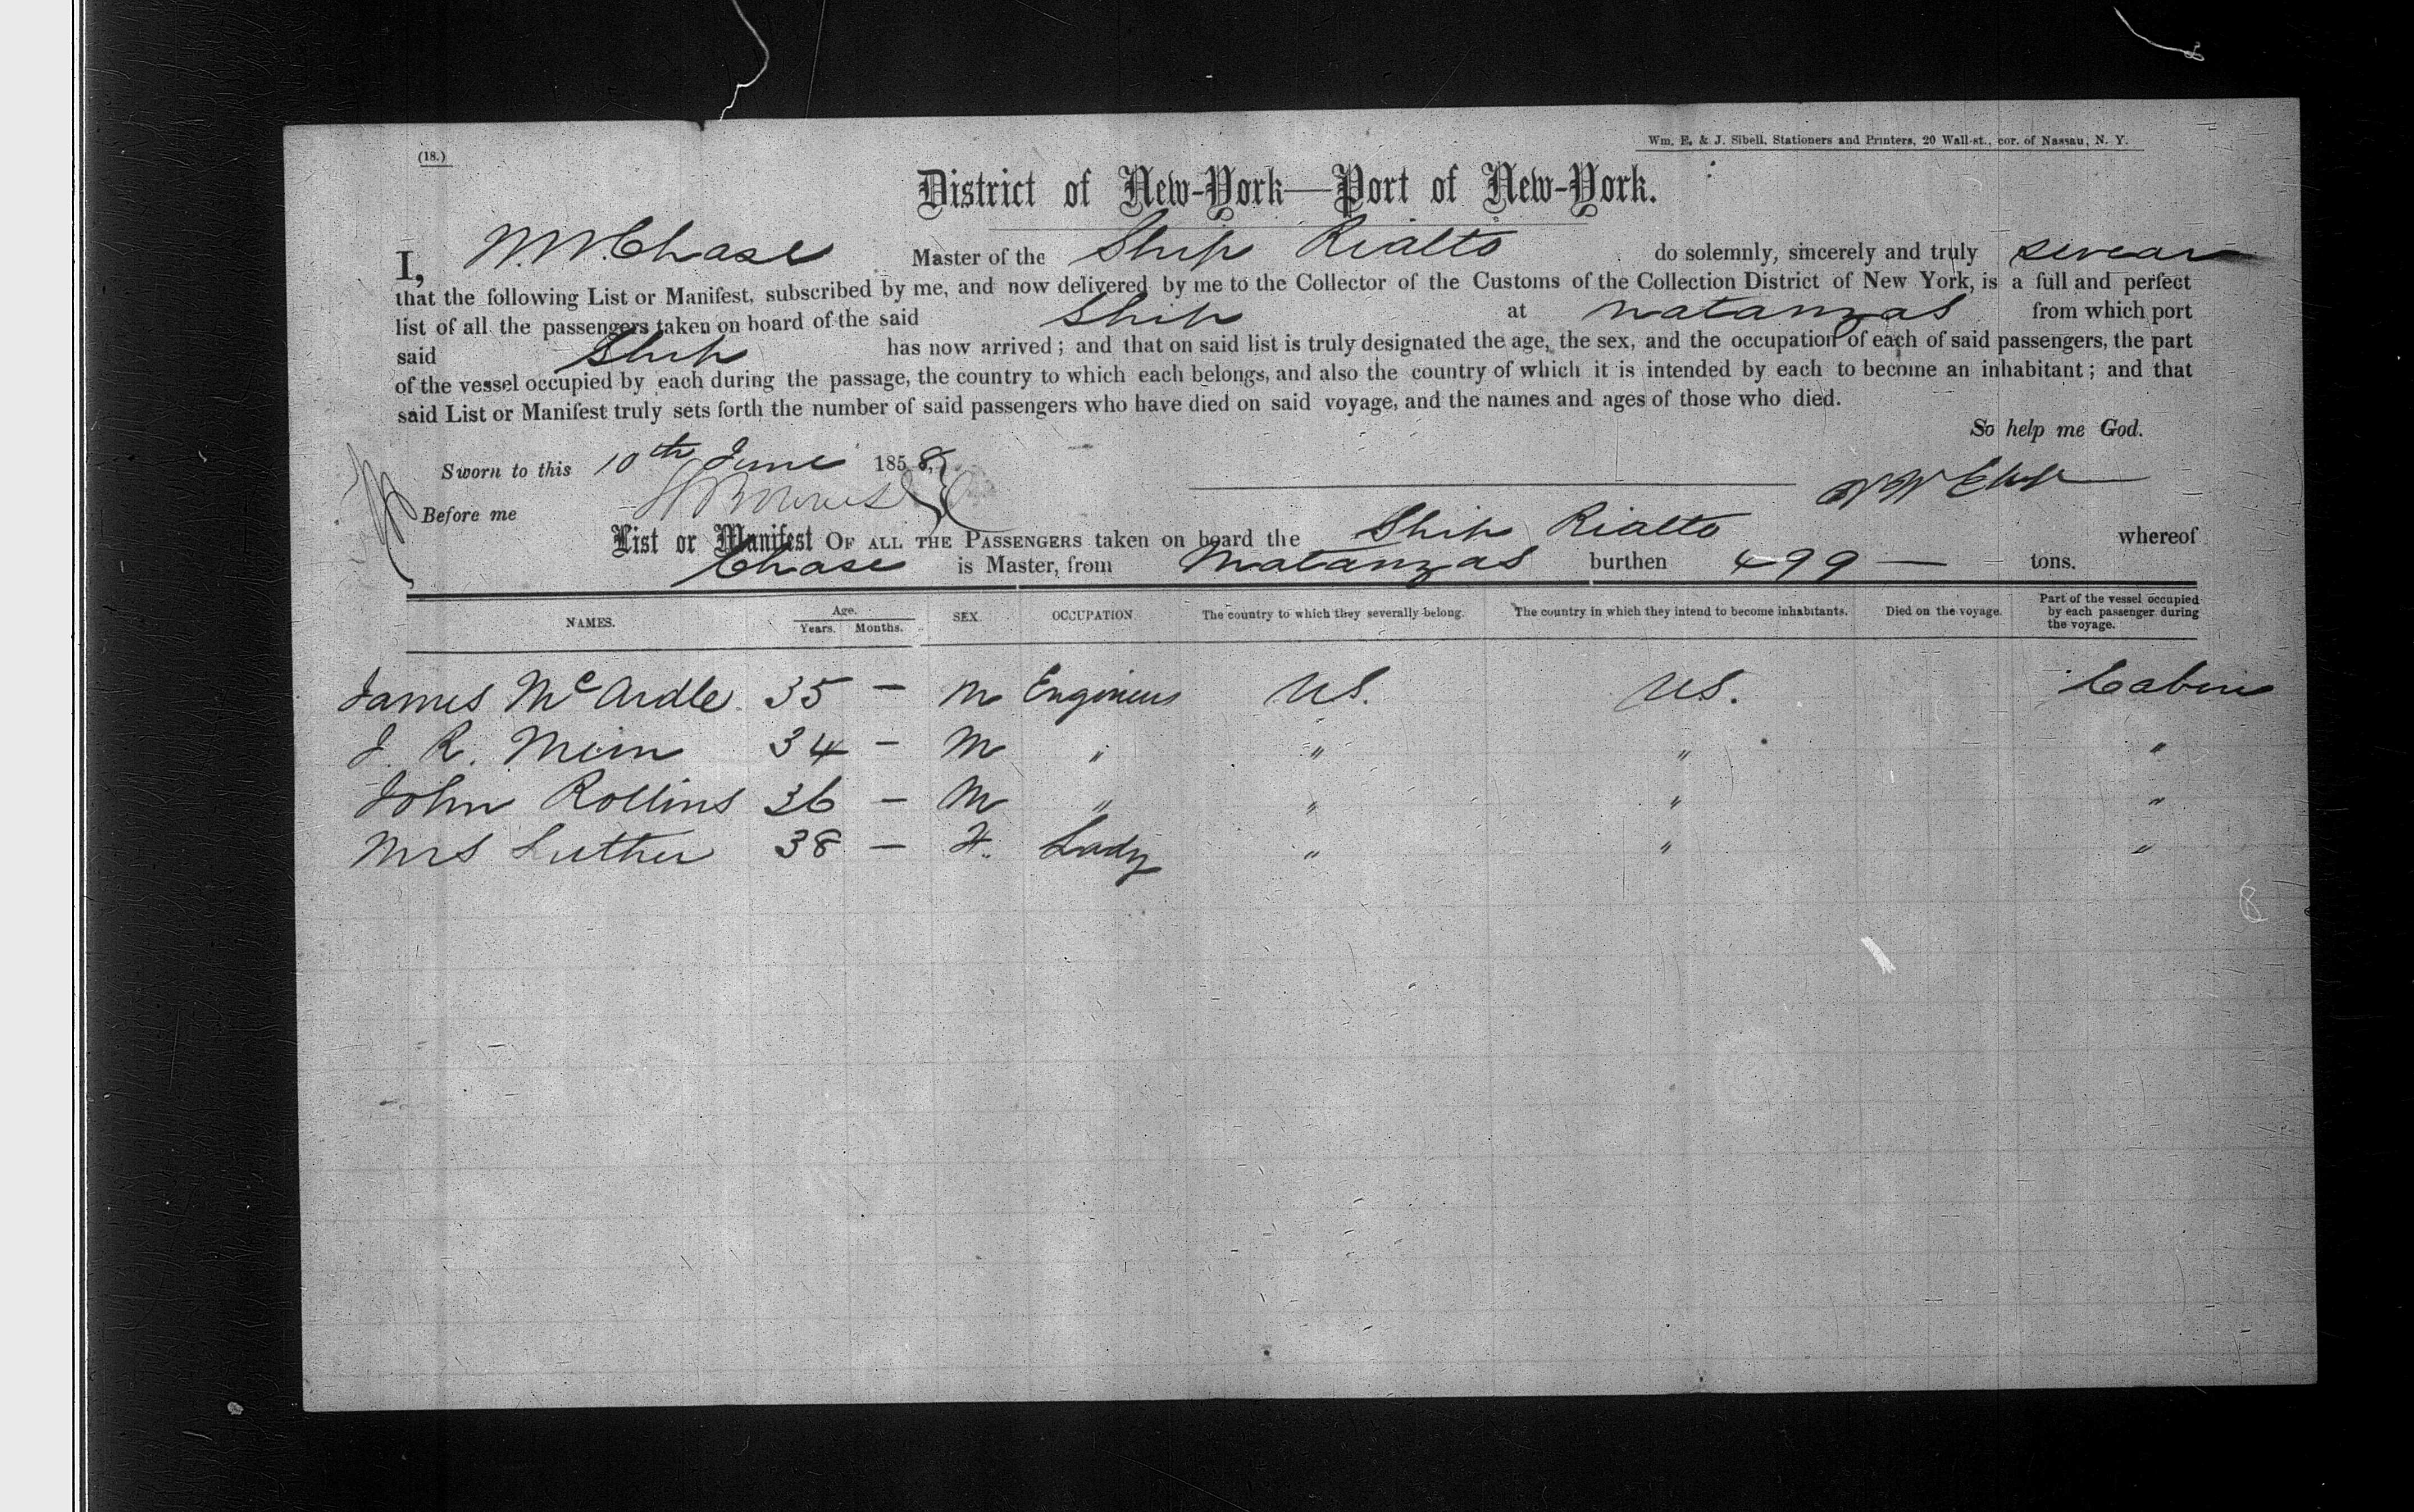 (18.)
Wm. E. & J. Sibell, Stationers and Printers, 20 Wall-st., cor. of Nassau, N. Y.
District of New-York—Port of New-York.
I, W. W. Chase Master of the Ship Rialto do solemnly, sincerely and truly swear
that the following List or Manifest, subscribed by me, and now delivered by me to the Collector of the Customs of the Collection District of New York, is a full and perfect
list of all the passengers taken on board of the said Ship at Matanzas from which port
said Ship has now arrived; and that on said list is truly designated the age, the sex, and the occupation of each of said passengers, the part
of the vessel occupied by each during the passage, the country to which each belongs, and also the country of which it is intended by each to become an inhabitant; and that
said List or Manifest truly sets forth the number of said passengers who have died on said voyage, and the names and ages of those who died.
So help me God.
Sworn to this 10th June 1858,
Before me
List or Manifest OF ALL THE PASSENGERS taken on board the Ship Rialto whereof
Chase is Master, from Matanzas burthen 499 — tons.
NAMES. Age. Years. Months. SEX. OCCUPATION. The country to which they severally belong. The country in which they intend to become inhabitants. Died on the voyage. Part of the vessel occupied by each passenger during the voyage.
James McArdle 35 — M Engineer US. US. Cabin
J. R. 34 — M " " " "
John Rollins 36 — M " " " "
Mrs Luther 38 — F. Lady " " "